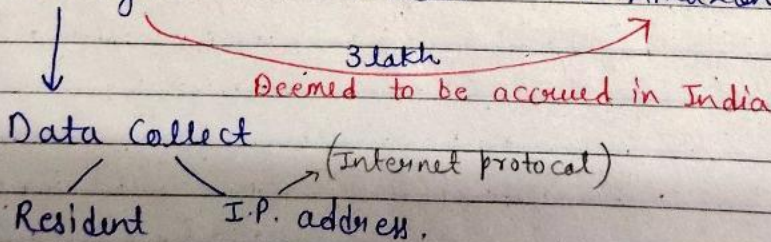 3 lakh
Deemed to be accrued in India
Data Collect
(Internet protocal)
Resident I.P. address.